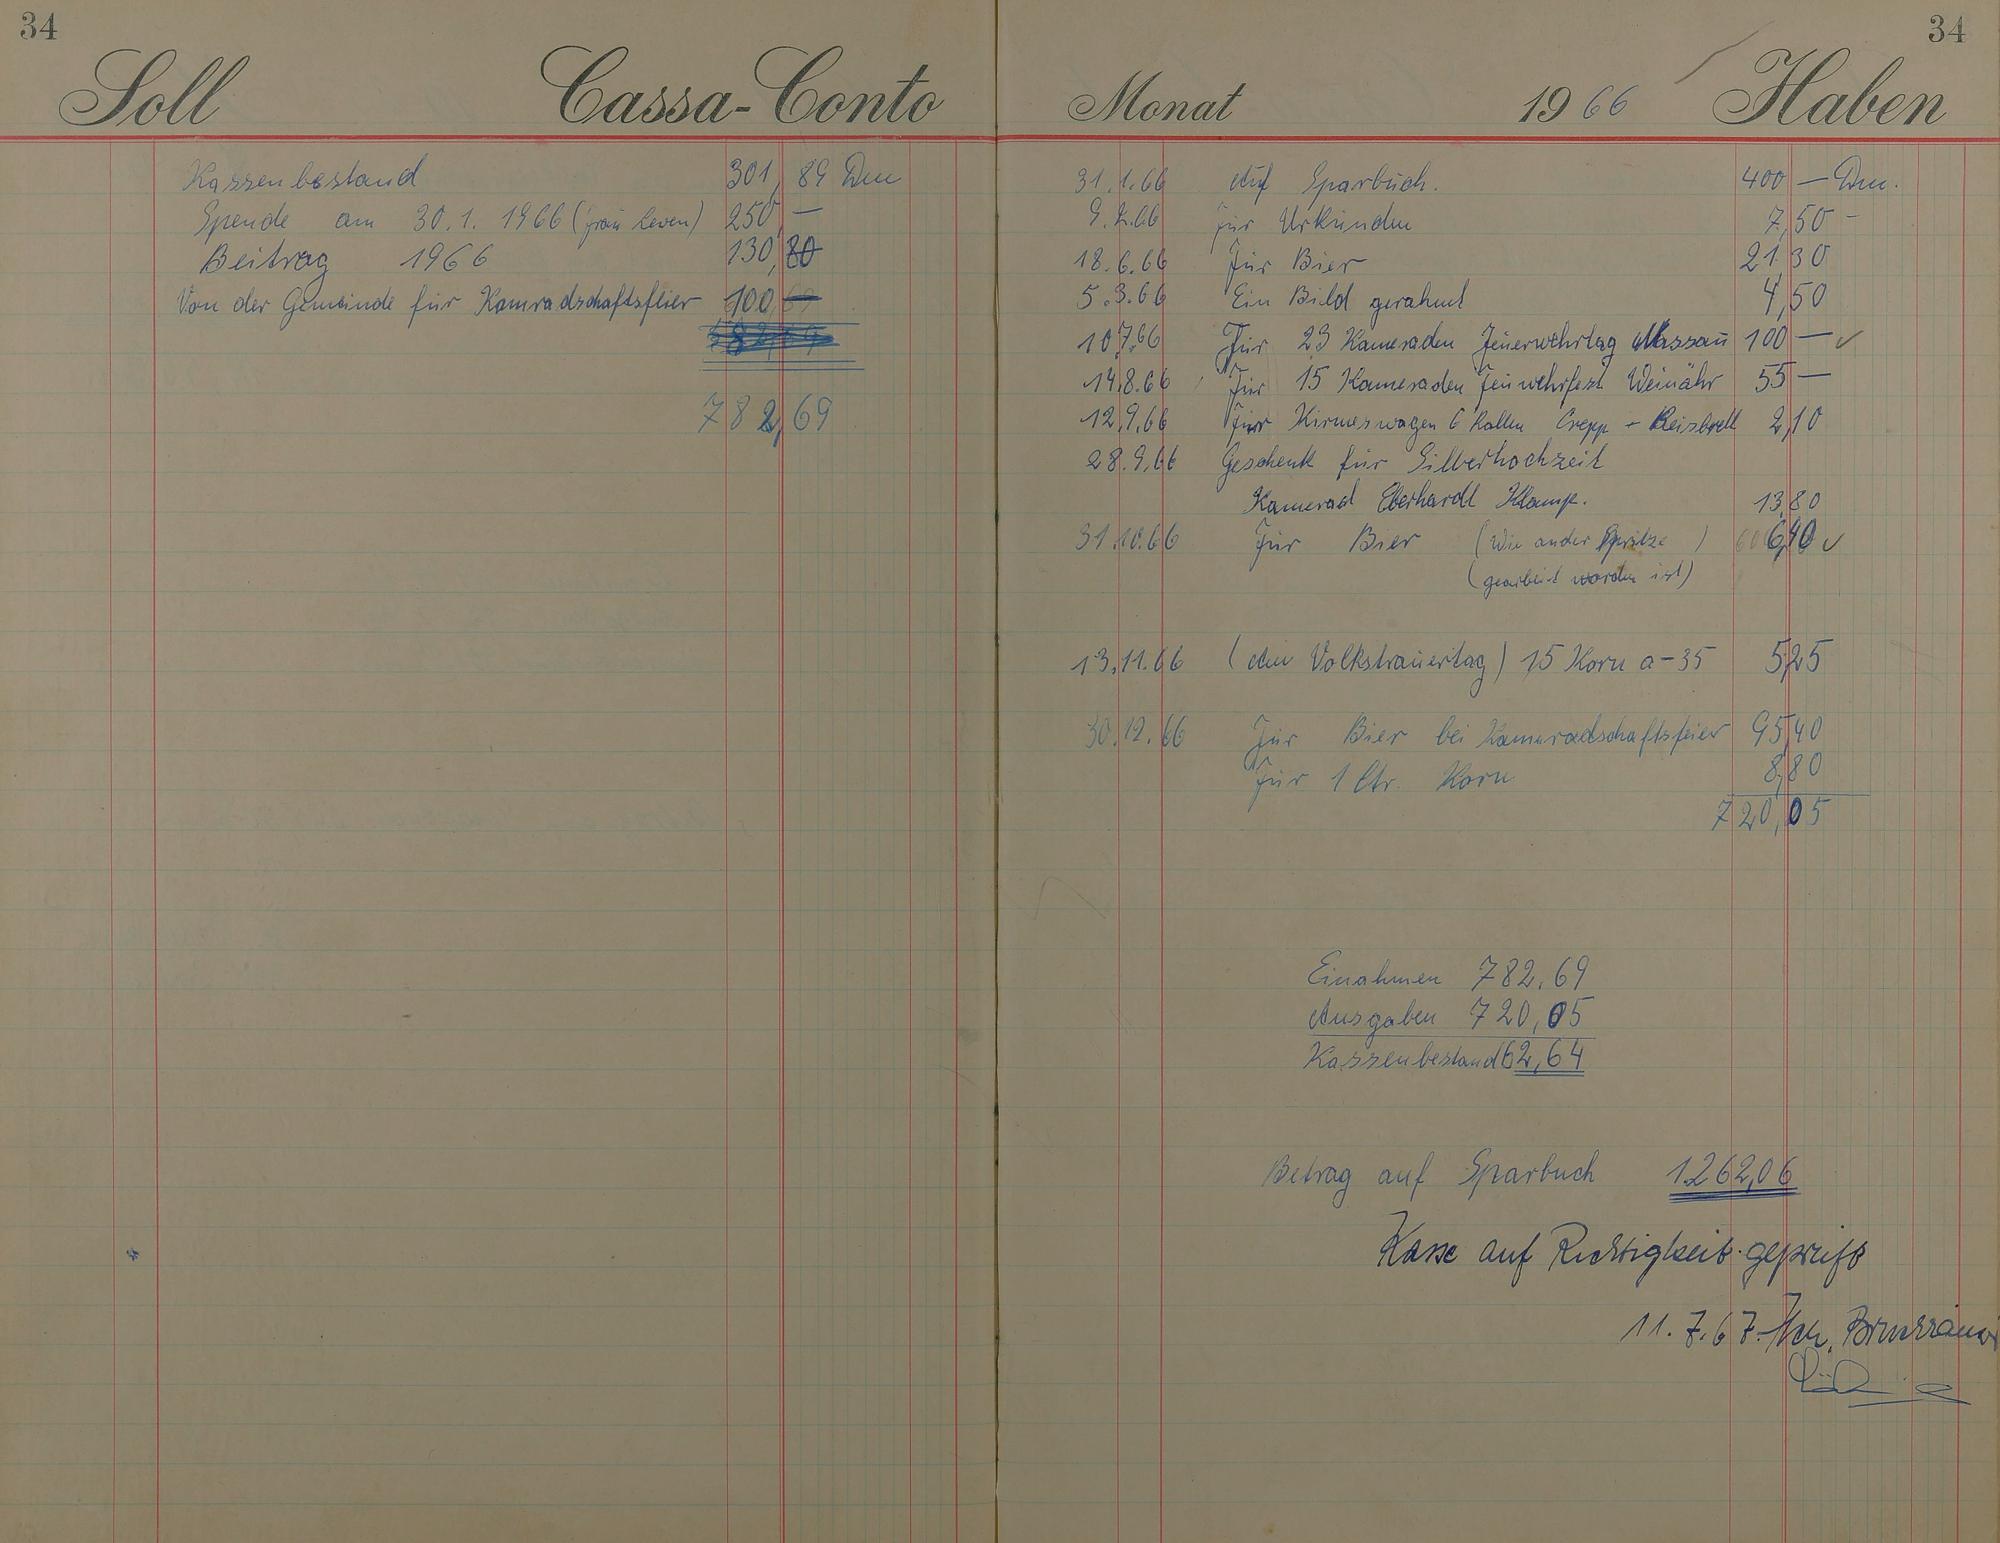 34
Soll Cassa-Conto
Kassenbestand 301,89 Dm
Spende am 30.1. 1966 (frau Leven) 250,—
Beitrag 1966 130,80
Von der Gemeinde für Kamradschaftsfeier 100,—
782,69
34
Monat 1966 Haben
31.1.66 Auf Sparbuch. 400 — Dm.
9.2.66 für Urkunden 7,50 -
18.6.66 Für Bier 21.30
5.3.66 Ein Bild gerahmt 4,50
10.7.66 Für 23 Kameraden Feuerwehrtag Nassau 100 —
14.8.66 Für 15 Kameraden Feuwehrfest Weinähr 55 —
12.9.66 Für Kirmeswagen 6 Rollen Crepp + Reisbrett 2,10
28.9.66 Geschenk für Silberhochzeit
Kamerad Eberhardt Klamp. 13,80
31.10.66 Für Bier (Wie ander Spritze ) 6,40
(gearbeit worden ist)
13.11.66 (Am Volkstrauertag) 15 Korn a-35 5,25
30.12.66 Für Bier bei Kameradschaftsfeier 95,40
Für 1 ltr. Korn 8,80
720,05
Einahmen 782,69
Ausgaben 720,05
Kassenbestand 62,64
Betrag auf Sparbuch 1.262,06
Kasse auf Richtigkeit geprüft
11.7.67.